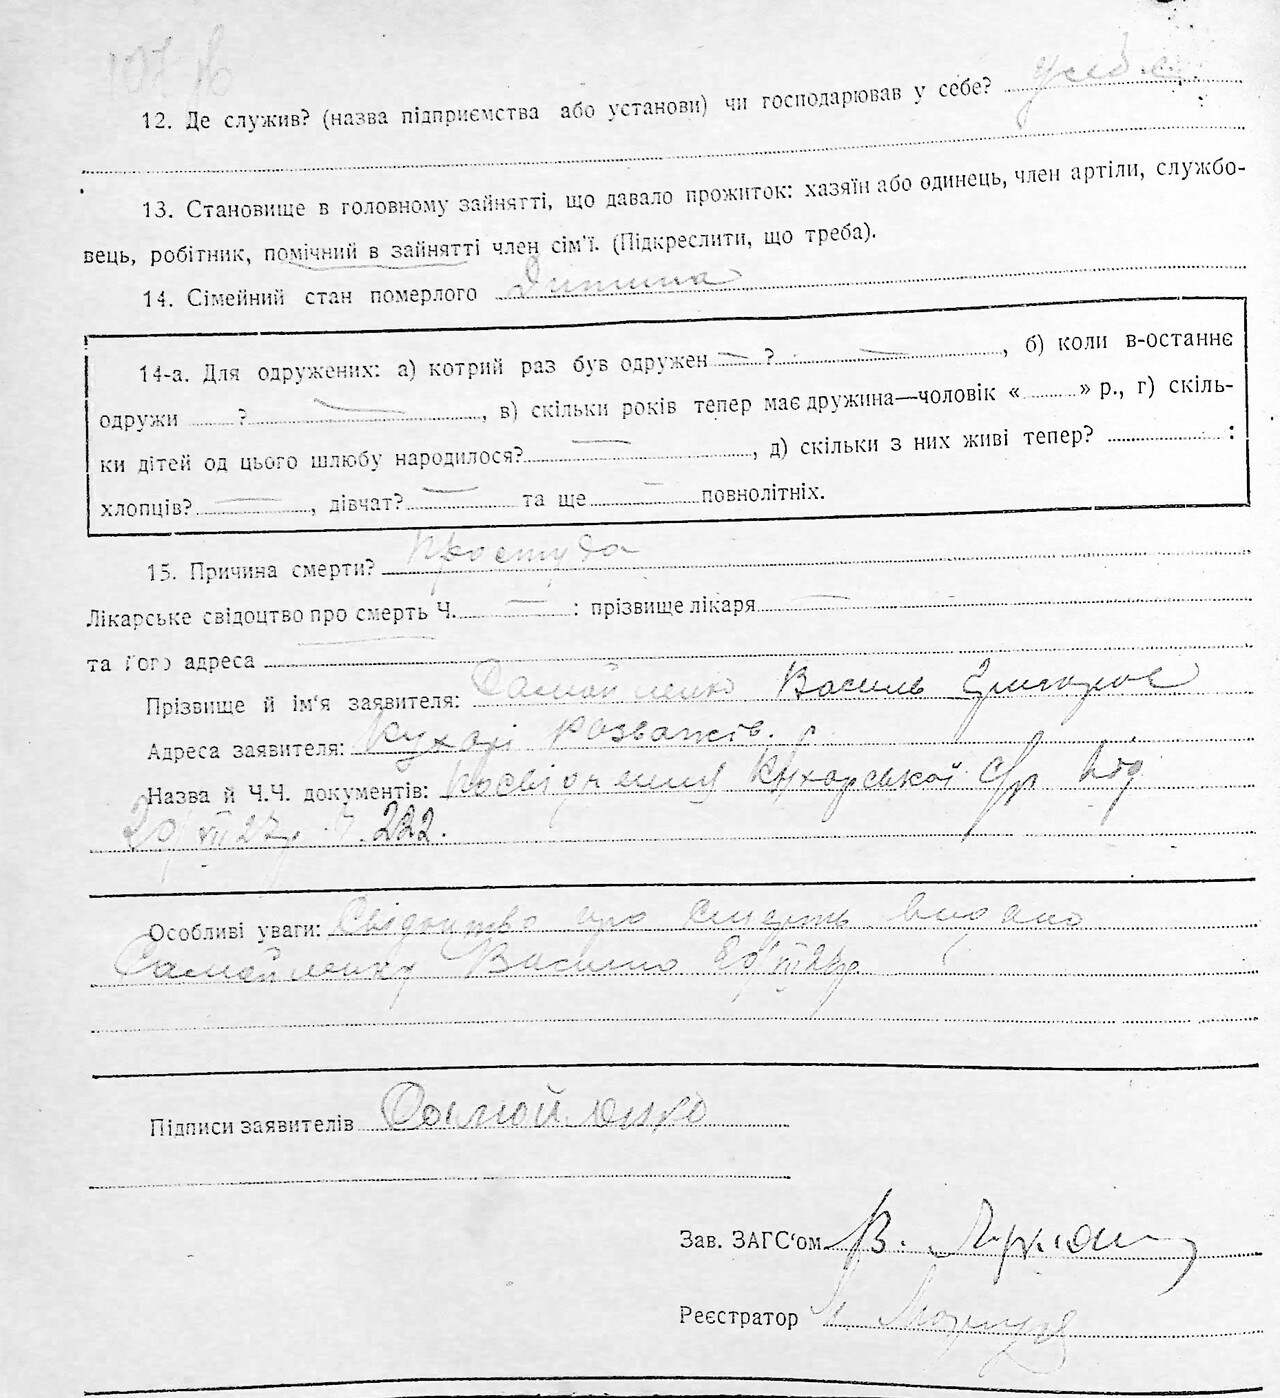 107
12. Де служив? (назва підприємства або установи) чи господарював у себе? у себе
13. Становище в головному зайнятті, що давало прожиток: хазяїн або одинець, член артіли, службо-
вець, робітник, помічний в зайнятті член сім'ї. (Підкреслити, що треба).
14. Сімейний стан померлого Дитина
14-а. Для одружених: а) котрий раз був одружен — ? — , б) коли в-останнє
одружи ? — , в) скільки років тепер має дружина—чоловік « » р., г) скіль-
ки дітей од цього шлюбу народилося? — , д) скільки з них живі тепер? :
хлопців? — , дівчат? — та ще — повнолітніх.
15. Причина смерти? Простуда
Лікарське свідоцтво про смерть Ч. — : прізвище лікаря —
та його адреса
Прізвище й ім'я заявителя: Самойленко Василь Григоров
Адреса заявителя: Кухарі Розважів.
Назва й Ч.Ч. документів: Посвідчення Кухарської с/р від
20/VII 27р. 222.
Особливі уваги: Свідоцтво про смерть видано
Самойленку Василю 20/VII 27р
Підписи заявителів Самойленко
Зав. ЗАГС'ом В.
Реєстратор